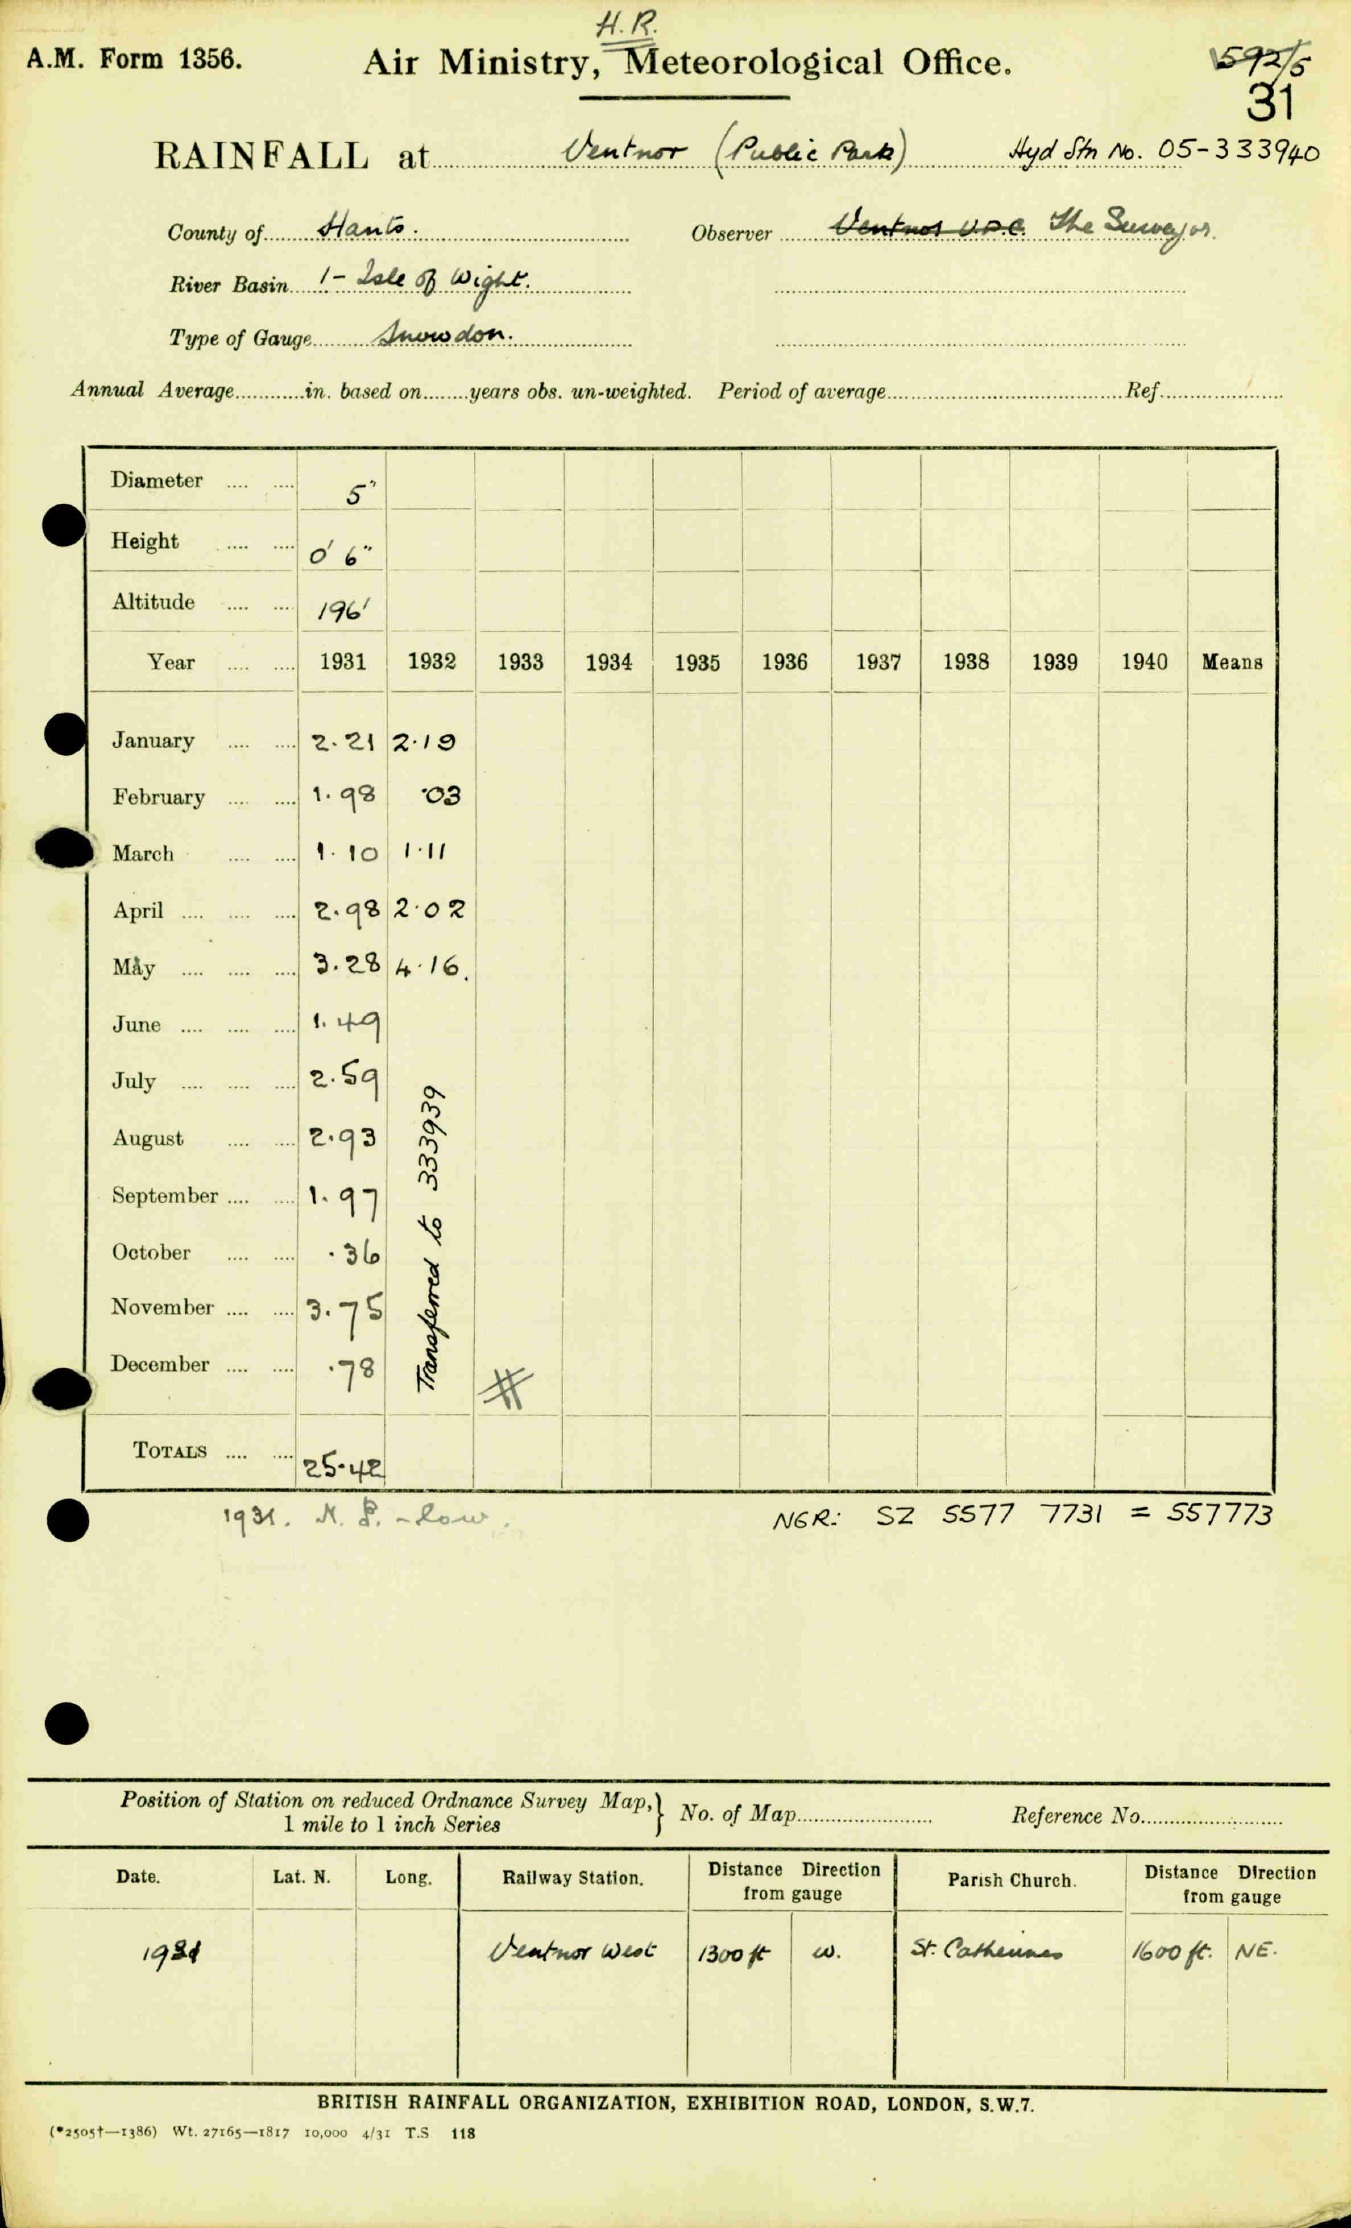 H.R.
A.M. Form 1356. Air Ministry, Meteorological Office. 592/5
31
RAINFALL at Ventnor (Public Park) Hyd Stn No. 05-333940
County of Hants. Observer Ventnor U.D.C. The Surveyor.
River Basin 1- Isle of Wight.
Type of Gauge Snowdon.
Annual Average............in. based on........years obs. un-weighted. Period of average.................... Ref....................
Diameter .... .... 5"
Height .... .... 0' 6"
Altitude .... .... 196'
Year .... .... 1931 1932 1933 1934 1935 1936 1937 1938 1939 1940 Means
January .... .... 2.21 2.19
February .... .... 1.98 .03
March .... .... 1.10 1.11
April .... .... .... 2.98 2.02
May .... .... .... 3.28 4.16.
June .... .... .... 1.49
July .... .... .... 2.59
August .... .... 2.93
September .... .... 1.97
October .... .... .36
November .... .... 3.75
December .... .... .78
Transferred to 333939
TOTALS .... .... 25.42
1931. - low. NGR: SZ 5577 7731 = 557773
Position of Station on reduced Ordnance Survey Map, } No. of Map.................... Reference No....................
1 mile to 1 inch Series
Date. Lat. N. Long. Railway Station. Distance Direction Parish Church. Distance Direction
from gauge from gauge
1931 Ventnor West 1300 ft W. St. Catherines 1600 ft. NE.
BRITISH RAINFALL ORGANIZATION, EXHIBITION ROAD, LONDON, S.W.7.
(*2505†—1386) Wt. 27165—1817 10,000 4/31 T.S 118